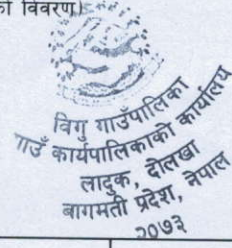 को विवरण)
विगु गाउँपालिका
गाउँ कार्यपालिकाको कार्यालय
लादुक, दोलखा
बागमती प्रदेश, नेपाल
२०७३